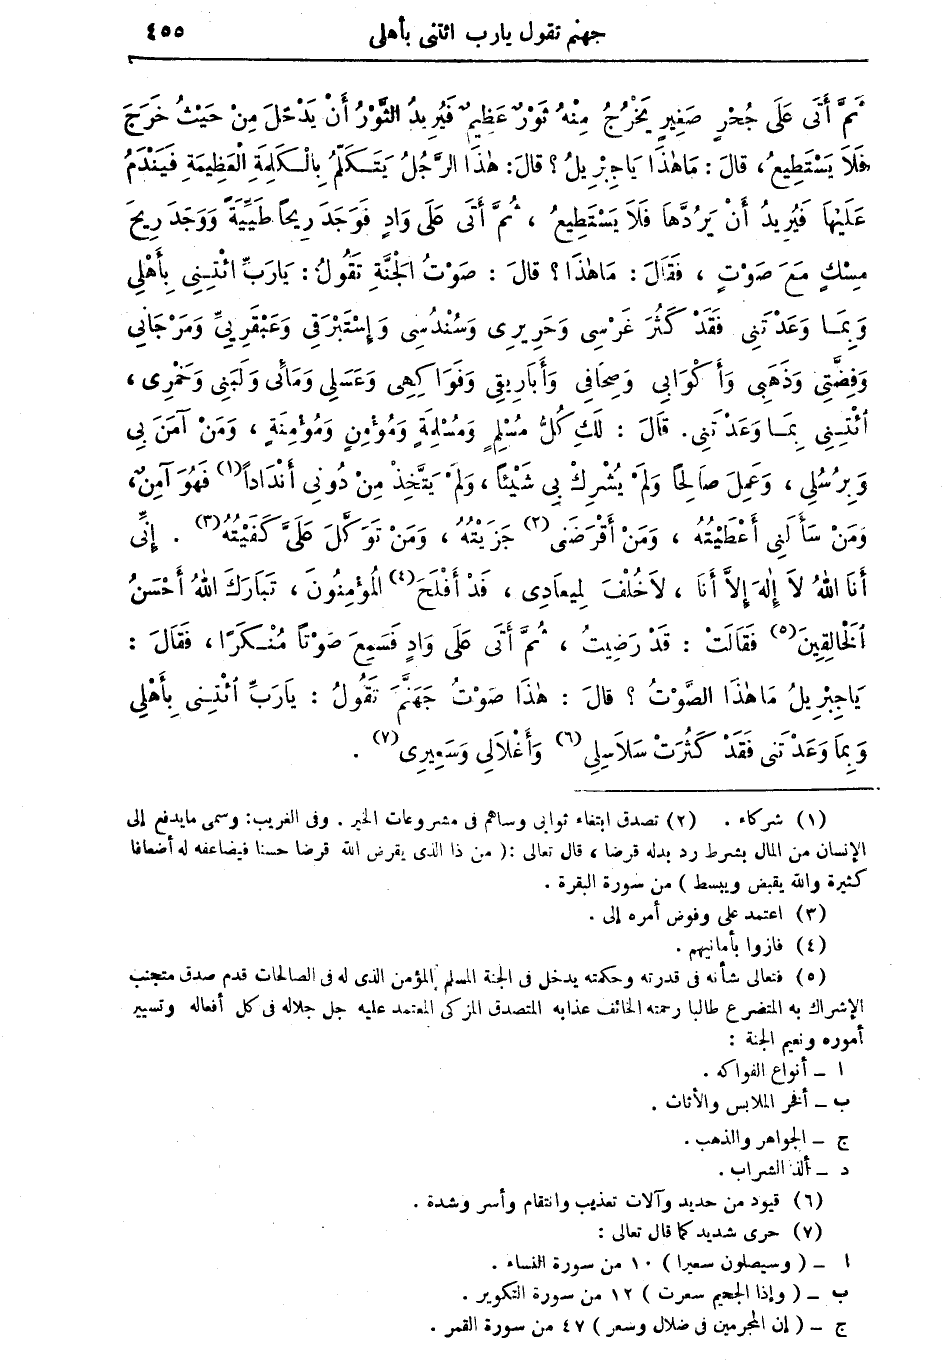 جهنم تقول يارب ائتنى بأهلى ٤٥٥
ثُمَّ أَتَى عَلَى جُحْرٍ صَغِيرٍ يَخْرُجُ مِنْهُ ثَوْرٌ عَظِيمٌ فَيُرِيدُ الثَّوْرُ أَنْ يَدْخُلَ مِنْ حَيْثُ خَرَجَ
فَلاَ يَسْتَطِيعُ، قالَ : مَا هٰذَا يَاجِبْرِيلُ؟ قالَ: هٰذَا الرَّجُلُ يَتَكَلَّمُ بِالْكَلِمَةِ الْعَظِيمَةِ فَيَنْدَمُ
عَلَيْهَا فَيُرِيدُ أَنْ يَرُدَّهَا فَلاَ يَسْتَطِيعُ ، ثُمَّ أَتَى عَلَى وَادٍ فَوَجَدَ رِيحاً طَيِّبَةً وَوَجَدَ رِيحَ
مِسْكٍ مَعَ صَوْتٍ ، فَقَالَ : مَاهٰذَا؟ قالَ : صَوْتُ الْجَنَّةِ تَقُولُ : يَارَبِّ ائْتِنِى بِأَهْلِي
وَبِمَا وَعَدْتَنِي فَقَدْ كَثُرَ غَرْسِي وَحَرِيرِى وَسُنْدُسِى وَإِسْتَبْرَقِي وَعَبْقَرِيِّ وَمَرْجَانِي
وَفِضَّتِي وَذَهَبِي وَأَكْوَابِي وَصِحَافِي وَأَبَارِيقِي وَفَوَاكِهِى وَعَسَلِي وَمَائِى وَلَبَنِي وَخَمْرِى ،
ائْتِنِي بِمَا وَعَدْتَنِي. قَالَ : لَكِ كُلُّ مُسْلِمٍ وَمُسْلِمَةٍ وَمُؤْمِنٍ وَمُؤْمِنَةٍ ، وَمَنْ آمَنَ بِي
وَبِرُسُلِي ، وَعَمِلَ صَالِحًا وَلَمْ يُشْرِكْ بِي شَيْئًا ، وَلَمْ يَتَّخِذْ مِنْ دُونِي أَنْدَاداً(١) فَهُوَ آمِنٌ،
وَمَنْ سَأَلَنِي أَعْطَيْتُهُ ، وَمَنْ أَقْرَضَنِى(٢) جَزَيْتُهُ ، وَمَنْ تَوَكَّلَ عَلَيَّ كَفَيْتُهُ(٣) . إِنِّي
أَنَا اللهُ لاَ إِلٰهَ إِلاَّ أَنَا ، لاَخُلْفَ لِمِيعَادِى ، قَدْ أَفْلَحَ(٤) الْمُؤْمِنُونَ ، تَبَارَكَ اللهُ أَحْسَنُ
الْخَالِقِينَ(٥) فَقَالَتْ : قَدْ رَضِيتُ ، ثُمَّ أَتَى عَلَى وَادٍ فَسَمِعَ صَوْتاً مُنْكَرًا ، فَقَالَ :
يَاجِبْرِيلُ مَاهٰذَا الصَّوْتُ ؟ قالَ : هٰذَا صَوْتُ جَهَنَّمَ تَقُولُ : يَارَبِّ ائْتِنِى بِأَهْلِي
وَبِمَا وَعَدْتَنِي فَقَدْ كَثُرَتْ سَلاَسِلِي(٦) وَأَغْلاَلِي وَسَعِيرِى(٧) .
(١) شركاء . (٢) تصدق ابتغاء ثوابى وساهم فى مشروعات الخير . وفى الغريب: وسمى مايدفع إلى
الإنسان من المال بشرط رد بدله قرضا ، قال تعالى :( من ذا الذى يقرض الله قرضا حسنا فيضاعفه له أضعافا
كثيرة والله يقبض ويبسط ) من سورة البقرة .
(٣) اعتمد على وفوض أمره إلى .
(٤) فازوا بأمانيهم .
(٥) فتعالى شأنه فى قدرته وحكمته يدخل فى الجنة المسلم المؤمن الذى له فى الصالحات قدم صدق متجنب
الإشراك به المتضرع طالبا رحمته الخائف عذابه المتصدق المزكى المعتمد عليه جل جلاله فى كل أفعاله وتسيير
أموره ونعيم الجنة :
ا ــ أنواع الفواكه .
ب ــ أفخر الملابس والأثاث .
ج ــ الجواهر والذهب .
د ــ ألذ الشراب .
(٦) قيود من حديد وآلات تعذيب وانتقام وأسر وشدة .
(٧) حرى شديد كما قال تعالى :
ا ــ ( وسيصلون سعيرا ) ١٠ من سورة النساء .
ب ــ ( وإذا الجحيم سعرت ) ١٢ من سورة التكوير .
ج ــ ( إن المجرمين فى ضلال وسعر ) ٤٧ من سورة القمر .